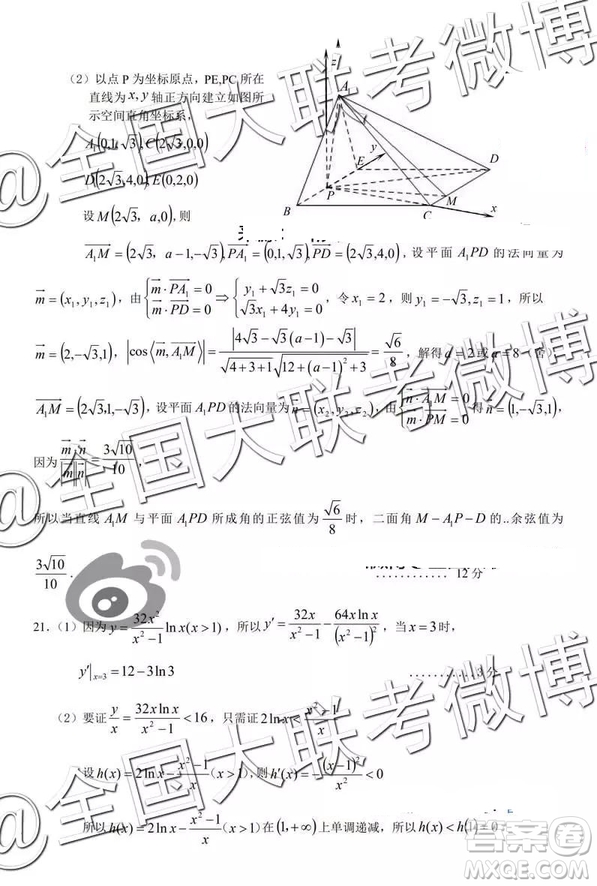 (2) 以点 P 为坐标原点, PE,PC 所在
直线为 x, y 轴正方向建立如图所
示空间直角坐标系,
A₁(0,1,√3), C(2√3,0,0)
D(2√3,4,0), E(0,2,0)
设 M(2√3, a,0), 则
z
A₁
y
E
D
P
M
B
C
x
A₁M = (2√3, a-1,-√3), PA₁ = (0,1,√3), PD = (2√3,4,0), 设平面 A₁PD 的法向量为
m = (x₁, y₁, z₁), 由 {m·PA₁=0, m·PD=0 ⇒ {y₁+√3z₁=0, √3x₁+4y₁=0, 令 x₁=2, 则 y₁=-√3, z₁=1, 所以
m = (2,-√3,1), |cos⟨m, A₁M⟩| = |4√3-√3(a-1)-√3| / (√(4+3+1)√(12+(a-1)²+3)) = √6/8, 解得 a=2 或 a=8 (舍),
A₁M = (2√3,1,-√3), 设平面 A₁PD 的法向量为 n = (x₂, y₂, z₂), 由 {n·A₁M=0, m·PM=0 得 n = (1,-√3,1),
因为 m·n/|m||n| = 3√10/10,
所以当直线 A₁M 与平面 A₁PD 所成角的正弦值为 √6/8 时, 二面角 M-A₁P-D 的..余弦值为
3√10/10. ............ 12 分
21. (1) 因为 y = 32x²/(x²-1) ln x(x>1), 所以 y′ = 32x/(x²-1) - 64x ln x/(x²-1)², 当 x=3 时,
y′|x=3 = 12-3ln3 ............ 3 分
(2) 要证 y/x = 32x ln x/(x²-1) < 16, 只需证 2ln x < (x²-1)/x
设 h(x) = 2ln x - (x²-1)/x (x>1), 则 h′(x) = -(x-1)²/x² < 0
所以 h(x) = 2ln x - (x²-1)/x (x>1) 在 (1,+∞) 上单调递减, 所以 h(x) < h(1) = 0,
@全国大联考微博
@全国大联考微博
@全国大联考微博
答案圈
MXQE.COM